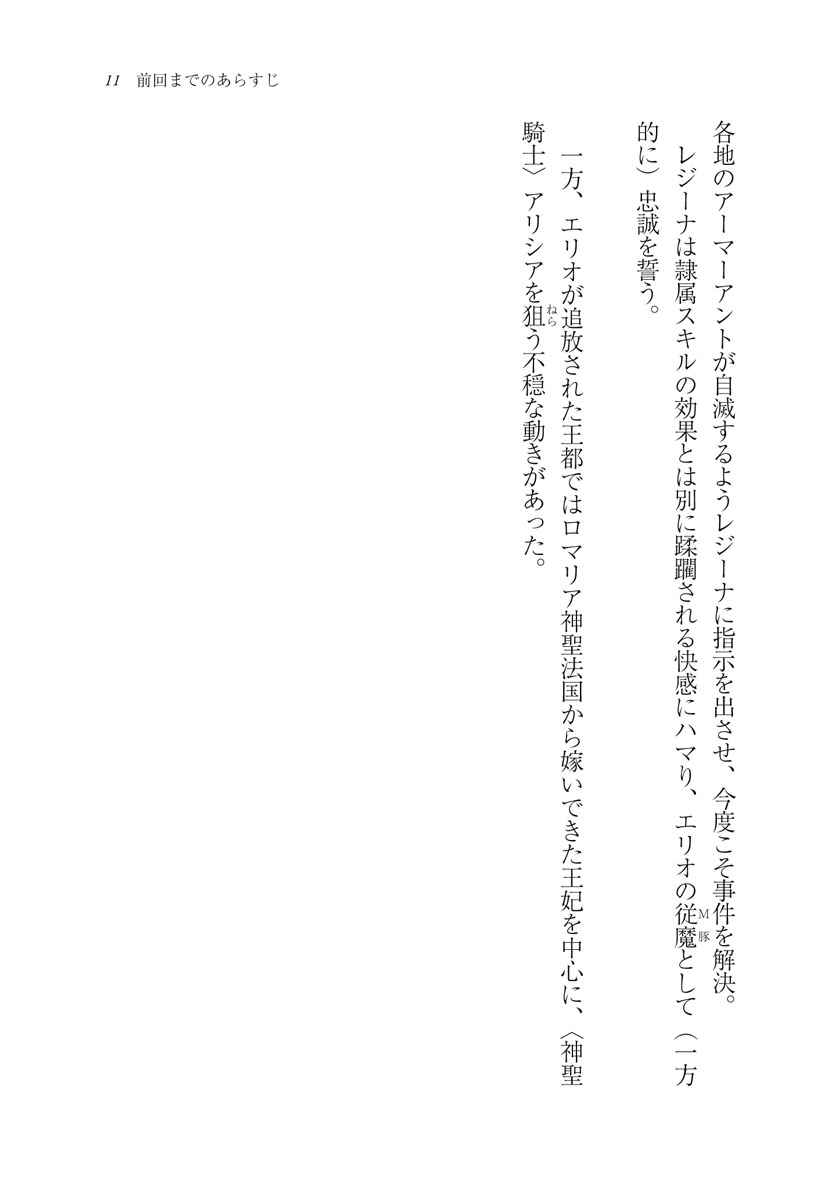 11　前回までのあらすじ
各地のアーマーアントが自滅するようレジーナに指示を出させ、今度こそ事件を解決。
　レジーナは隷属スキルの効果とは別に蹂躙される快感にハマり、エリオの従魔（M豚）として（一方
的に）忠誠を誓う。
　一方、エリオが追放された王都ではロマリア神聖法国から嫁いできた王妃を中心に、〈神聖
騎士〉アリシアを狙（ねら）う不穏な動きがあった。